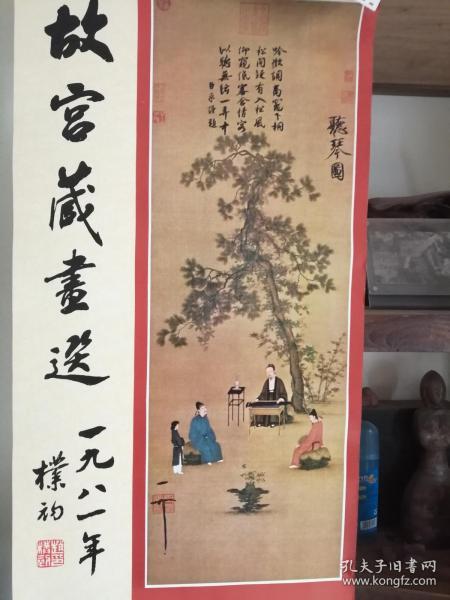 故宫藏畫選
一九八一年
樸初
聽琴圖
吟徵調商竈下桐
松間疑有入松風
仰窺低審含情客
似聽無絃一弄中
臣京謹題
孔夫子旧书网
www.kongfz.com